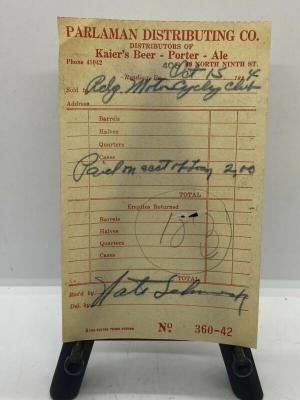 PARLAMAN DISTRIBUTING CO.
DISTRIBUTORS OF
Kaier's Beer - Porter - Ale
Phone 41042 NORTH NINTH ST.
Reading, Pa. Oct 15 194
Sold to Rdg. Motor Cycle Club
Address
Barrels
Halves
Quarters
Cases
Paid on acct of 2,00
TOTAL
Empties Returned
Barrels
Halves
Quarters
Cases
TOTAL
Rec'd by
Del. by
Nº 360-42